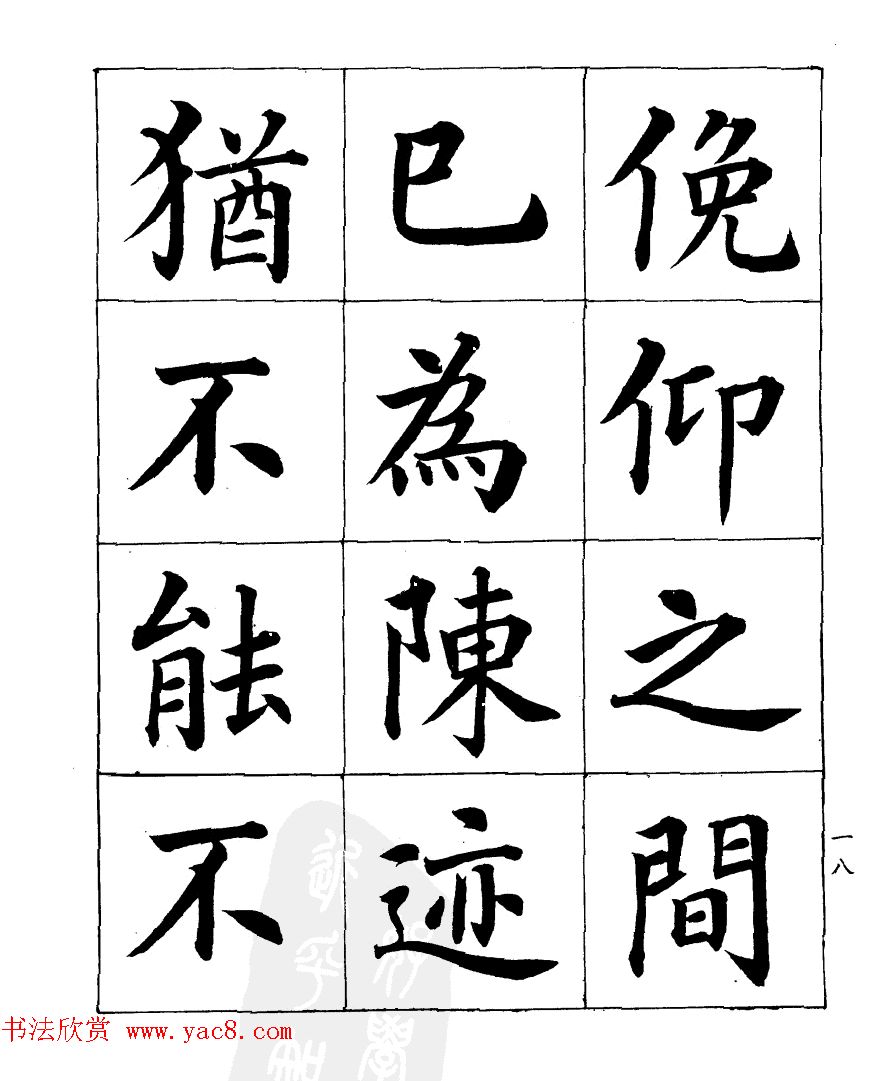 俛仰之間
已為陳迹
猶不能不
一八
书法欣赏 www.yac8.com